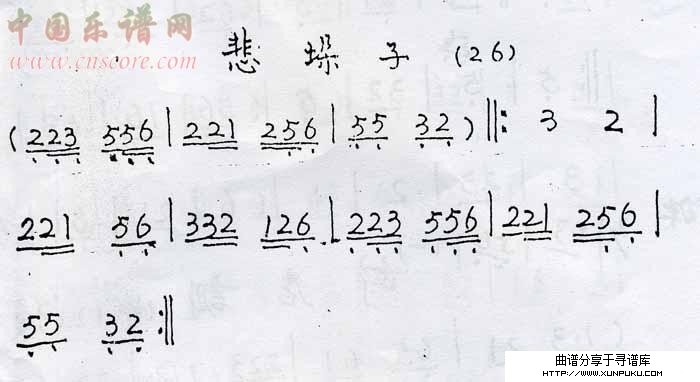 中国乐谱网
www.cnscore.com
悲垛子 (26)
(223 556 | 221 256 | 55 32) ‖: 3 2 |
221 56 | 332 126 | 223 556 | 221 256 |
55 32 :‖
曲谱分享于寻谱库
HTTP://WWW.XUNPUKU.COM